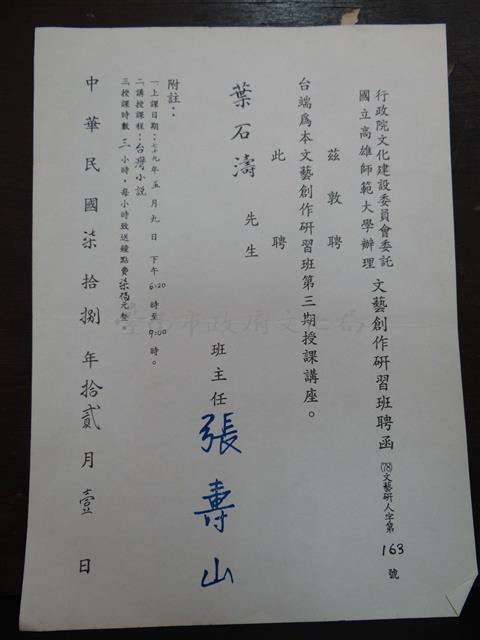 行政院文化建設委員會委託
國立高雄師範大學辦理
文藝創作研習班聘函
(78)文藝研人字第163號
茲敦聘
台端為本文藝創作研習班第三期授課講座。
此聘
葉石濤先生
班主任 張壽山
附註：
一、上課日期：七十九年五月九日下午6:20時至9:00時。
二、講授課程：台灣小說
三、授課時數三小時，每小時致送鐘點費柒佰元整。
中華民國柒拾捌年拾貳月壹日